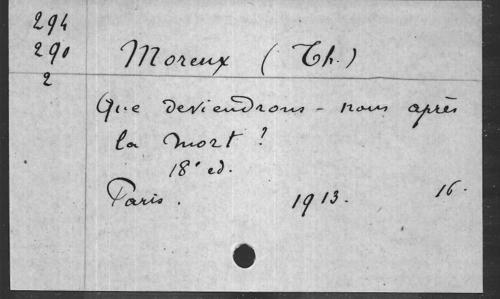 294
290
2
Moreux (Th.)
Que deviendrons-nous après
la mort ?
18e ed.
Paris. 1913. 16.